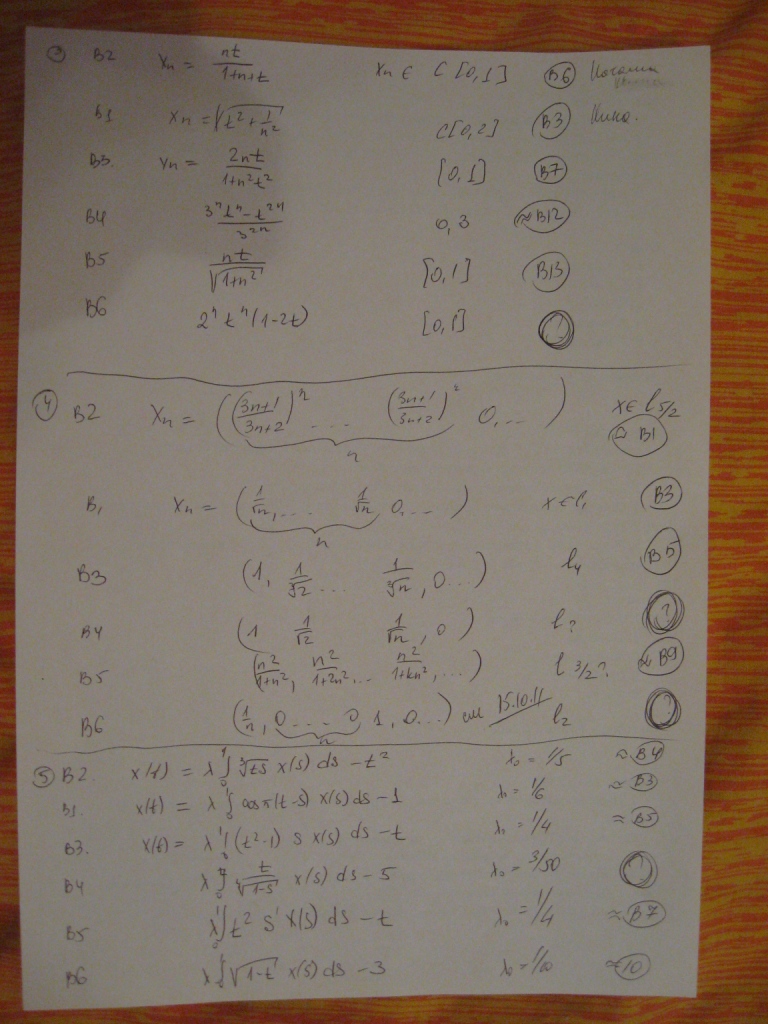 ③ B2 Xn = nt/(1+n+t) Xn ∈ C[0,1] B6
B1 Xn = √(t² + 1/n²) C[0,2] B3
B3. Xn = 2nt/(1+n²t²) [0,1] B7
B4 (3ⁿtⁿ - t²ⁿ)/3²ⁿ 0,3 ≈B12
B5 nt/√(1+n²) [0,1] B13
B6 2ⁿtⁿ(1-2t) [0,1]
④ B2 Xn = (((3n+1)/(3n+2))ⁿ ... ((3n+1)/(3n+2))², 0,... ) X∈ l5/2
n ≈ B1
B1 Xn = (1/√n, ... 1/√n, 0,... ) x∈l1 B3
n
B3 (1, 1/∛2 ... 1/∛n, 0...) l4 B5
B4 (1 1/√2 1/√n, 0 ) l? ?
B5 (n²/(1+n²), n²/(1+2n²), ... n²/(1+kn²), ...) l 3/2?. ≈ B9
B6 (1/n, 0 ... 0 1, 0...) см 15.10.11 l2 ?
n
⑤ B2. x(t) = λ∫₀¹ ∛(ts) x(s) ds - t² λ0 = 1/5 ≈ B4
B1. x(t) = λ∫₀¹ cos π(t-s) x(s) ds - 1 λ0 = 1/6 ≈ B3
B3. x(t) = λ∫₀¹ (t²-1) s x(s) ds - t λ0 = 1/4 ≈ B5
B4 x(s) ds - 5 λ0 = 3/50
B5 λ∫₀¹ t² s x(s) ds - t λ0 = 1/4 ≈ B7
B6 λ∫ √(1-t) x(s) ds - 3 λ0 = 1/10 ≈10